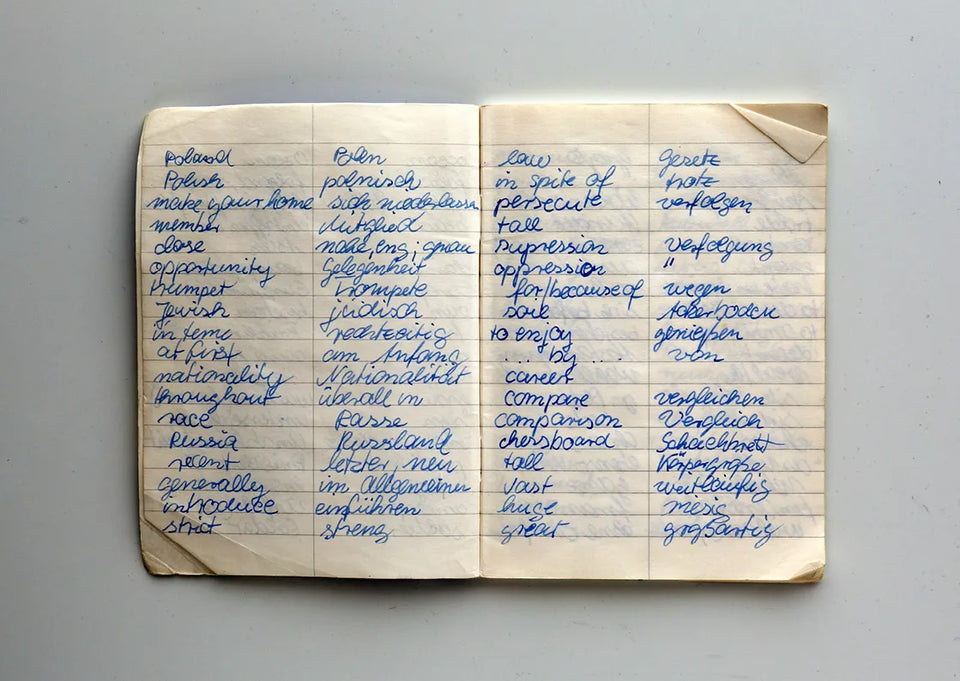 Poland Polen
Polish polnisch
make your home sich niederlassen
member Mitglied
close nahe, eng; genau
opportunity Gelegenheit
trumpet Trompete
Jewish jüdisch
in time rechtzeitig
at first am Anfang
nationality Nationalität
throughout überall in
race Rasse
Russia Russland
recent letzter, neu
generally im Allgemeinen
introduce einführen
strict streng
law Gesetz
in spite of trotz
persecute verfolgen
tall
supression Verfolgung
oppression "
for/because of wegen
soil Ackerboden
to enjoy genießen
... by ... von
career
compare vergleichen
comparison Vergleich
chessboard Schachbrett
tall Körpergröße
vast weitläufig
huge riesig
great großartig